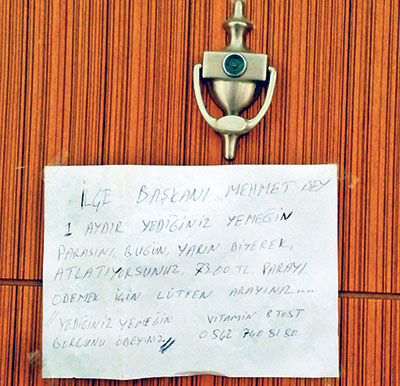 İLÇE BAŞKANI MEHMET BEY
1 AYDIR YEDİĞİNİZ YEMEĞİN
PARASINI, BUGÜN, YARIN DİYEREK,
ATLATIYORSUNUZ. 75.00 TL. PARAYI
ÖDEMEK İÇİN LÜTFEN ARAYINIZ....
YEDİĞİNİZ YEMEĞİN
BORCUNU ÖDEYİNİZ
VİTAMİN & TOST
0542 760 81 80